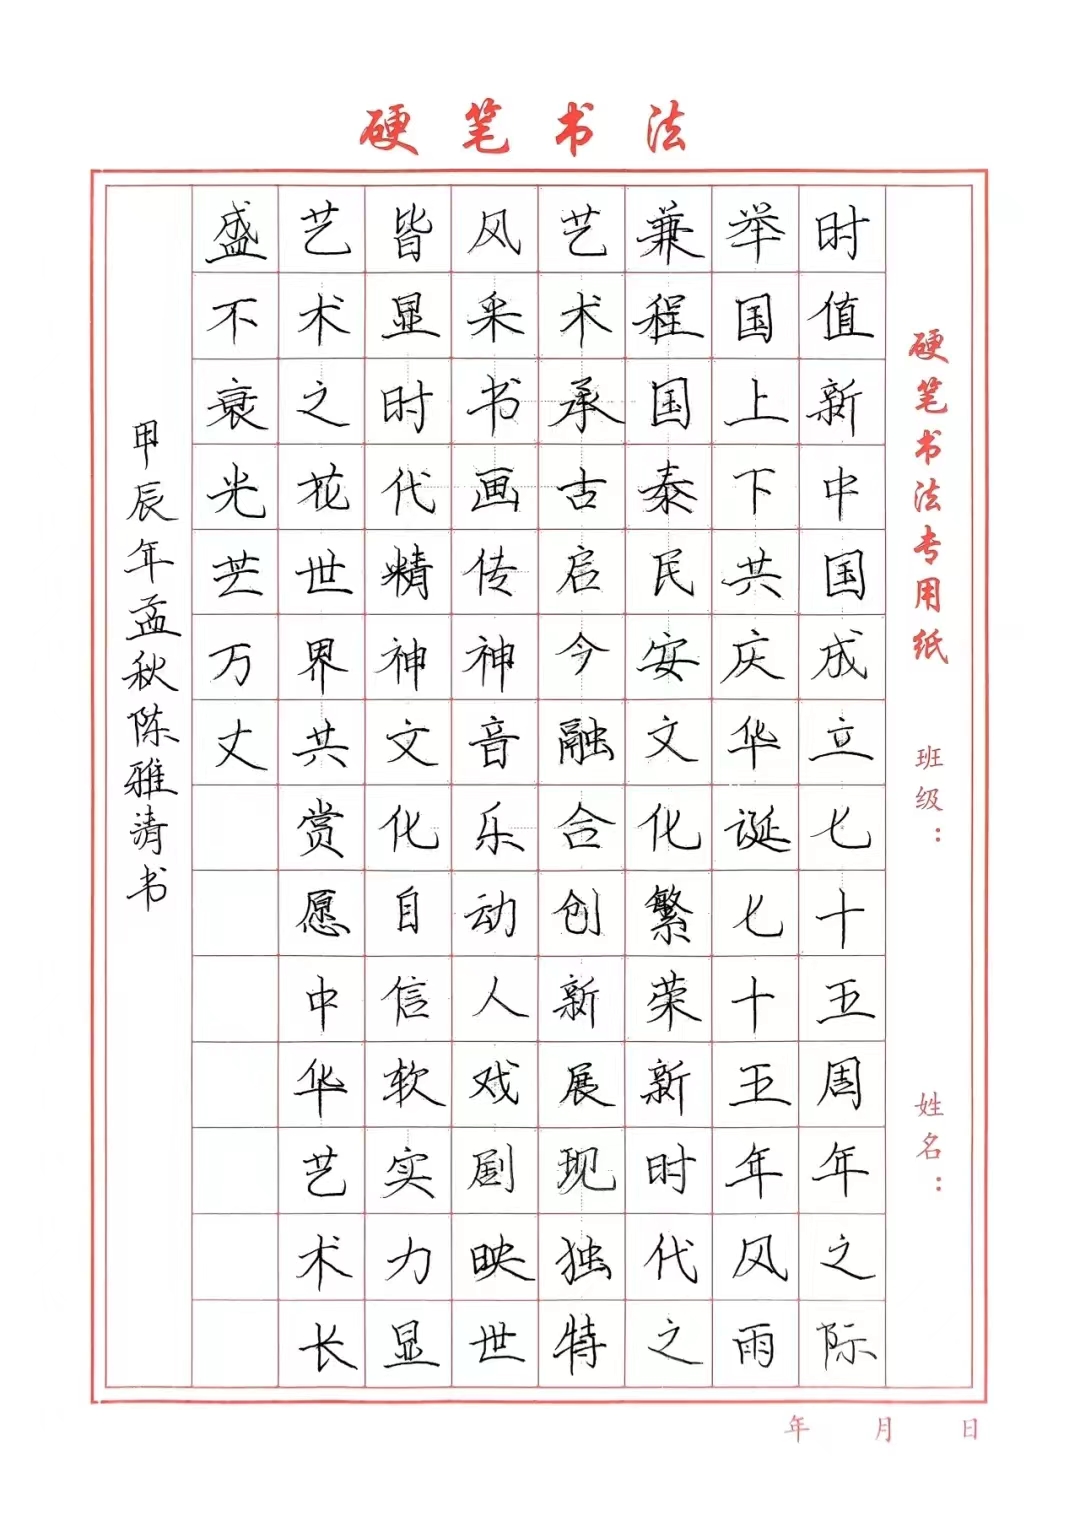 硬笔书法
硬笔书法专用纸 班级： 姓名：
时值新中国成立七十五周年之际
举国上下共庆华诞七十五年风雨
兼程国泰民安文化繁荣新时代之
艺术承古启今融合创新展现独特
风采书画传神音乐动人戏剧映世
皆显时代精神文化自信软实力显
艺术之花世界共赏愿中华艺术长
盛不衰光芒万丈
甲辰年孟秋陈雅清书
年 月 日